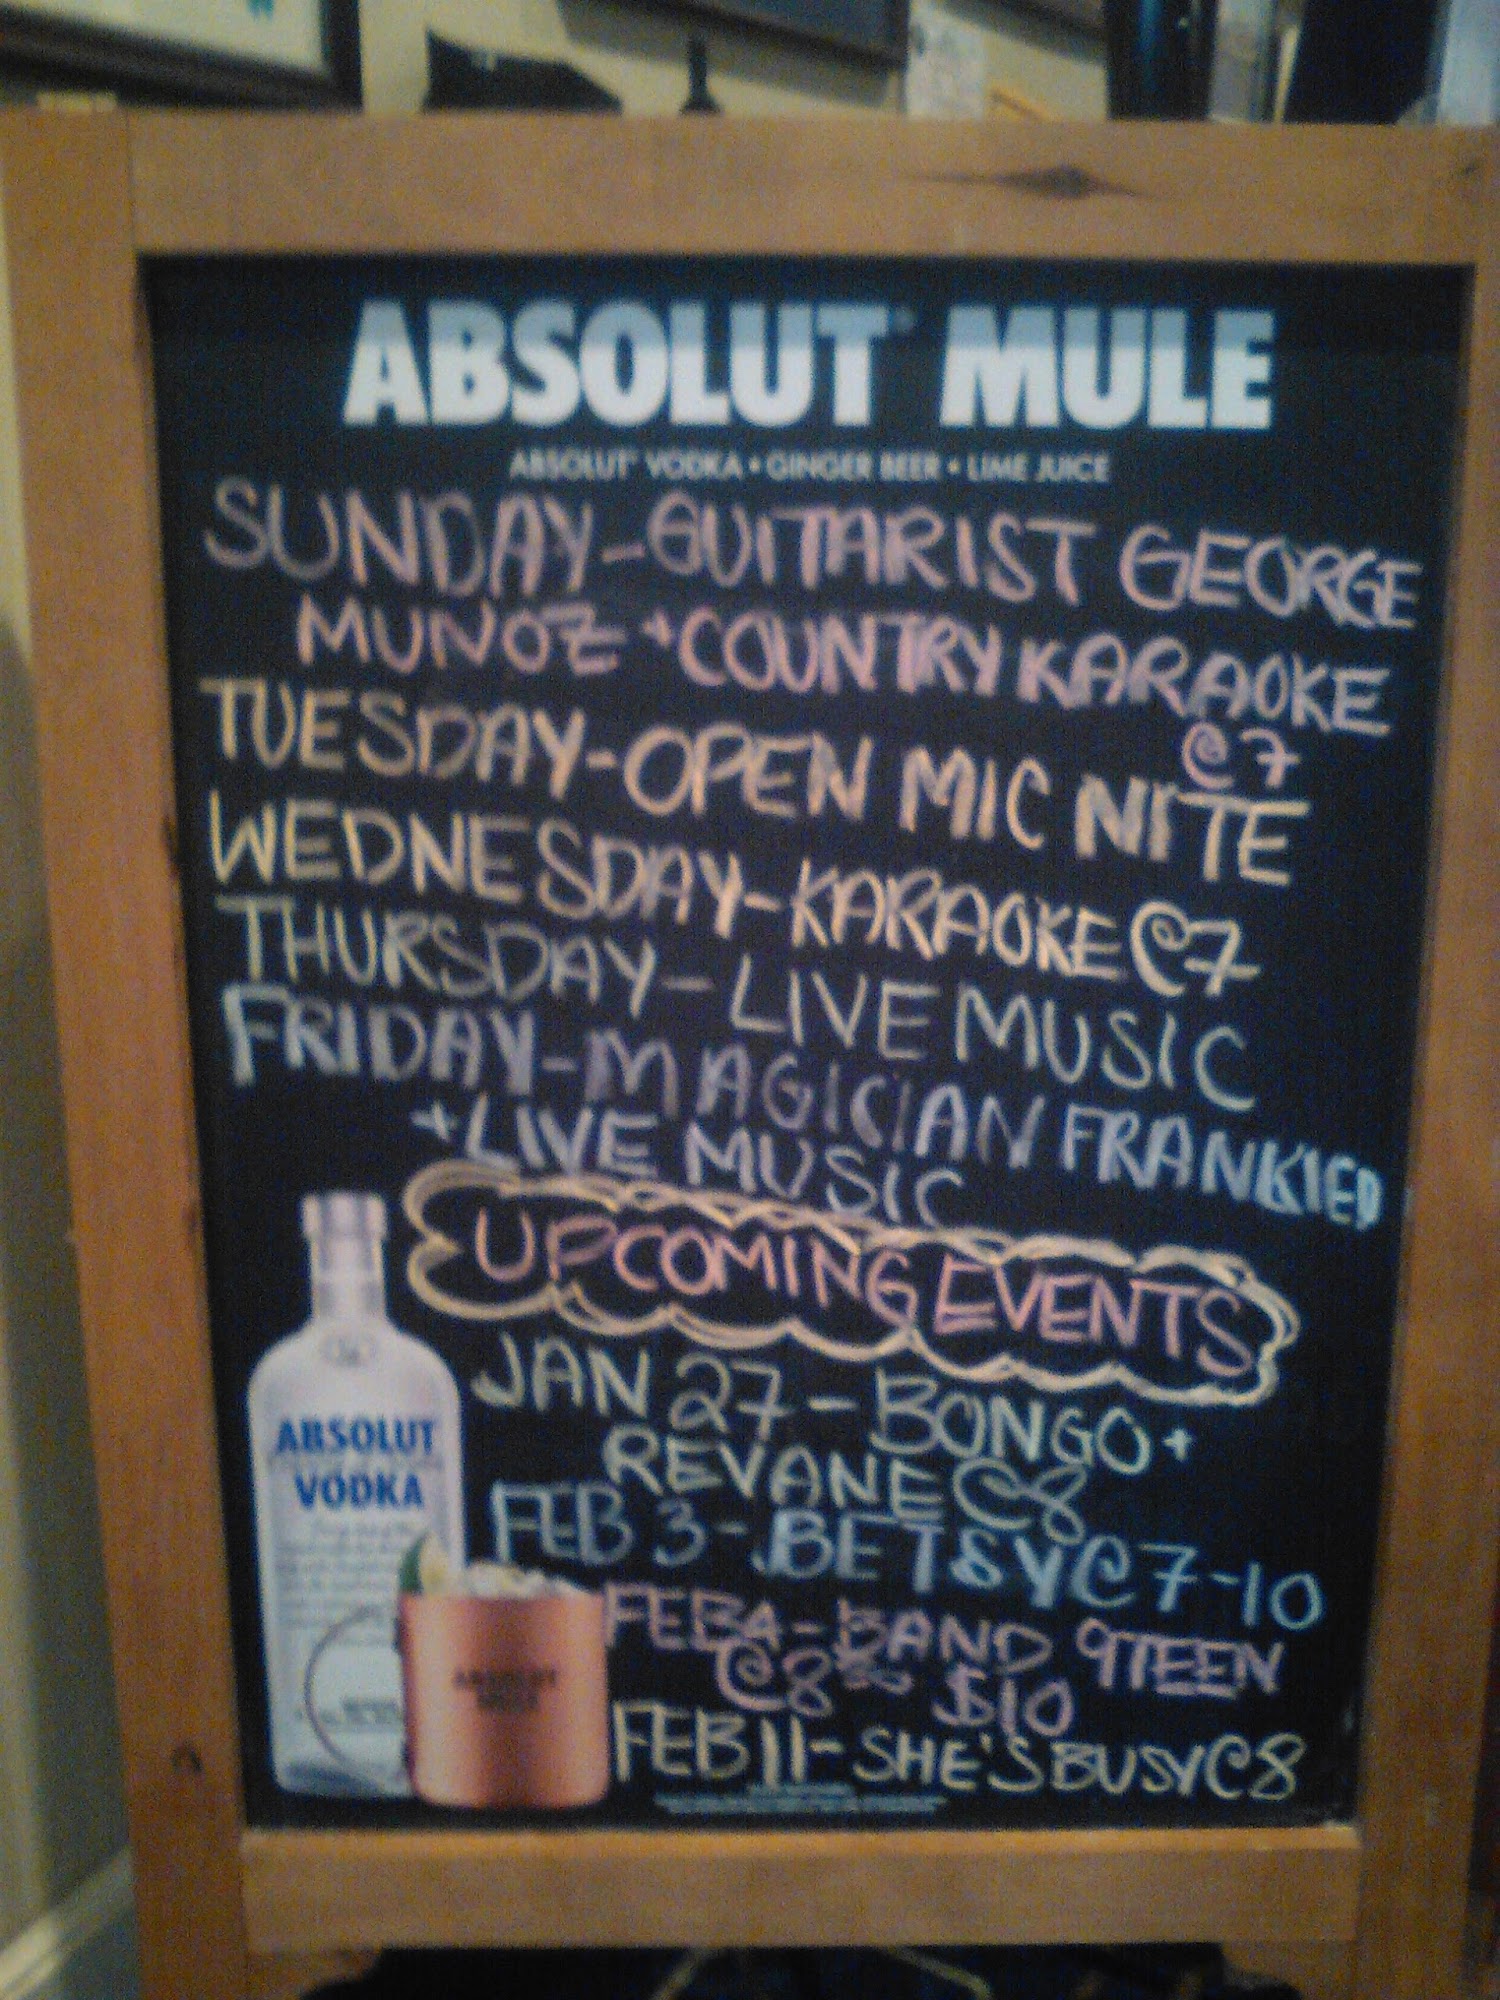 ABSOLUT MULE
ABSOLUT VODKA • GINGER BEER • LIME JUICE
SUNDAY-GUITARIST GEORGE
MUNOZ + COUNTRY KARAOKE
@7
TUESDAY-OPEN MIC NITE
WEDNESDAY-KARAOKE @7
THURSDAY-LIVE MUSIC
FRIDAY-MAGICIAN FRANKIED
+LIVE MUSIC
UPCOMING EVENTS
JAN 27-BONGO+
REVANE @8
FEB 3-BETSY @ 7-10
FEB 4-BAND 9TEEN
@8 $10
FEB 11-SHE'S BUSY @8
ABSOLUT
VODKA